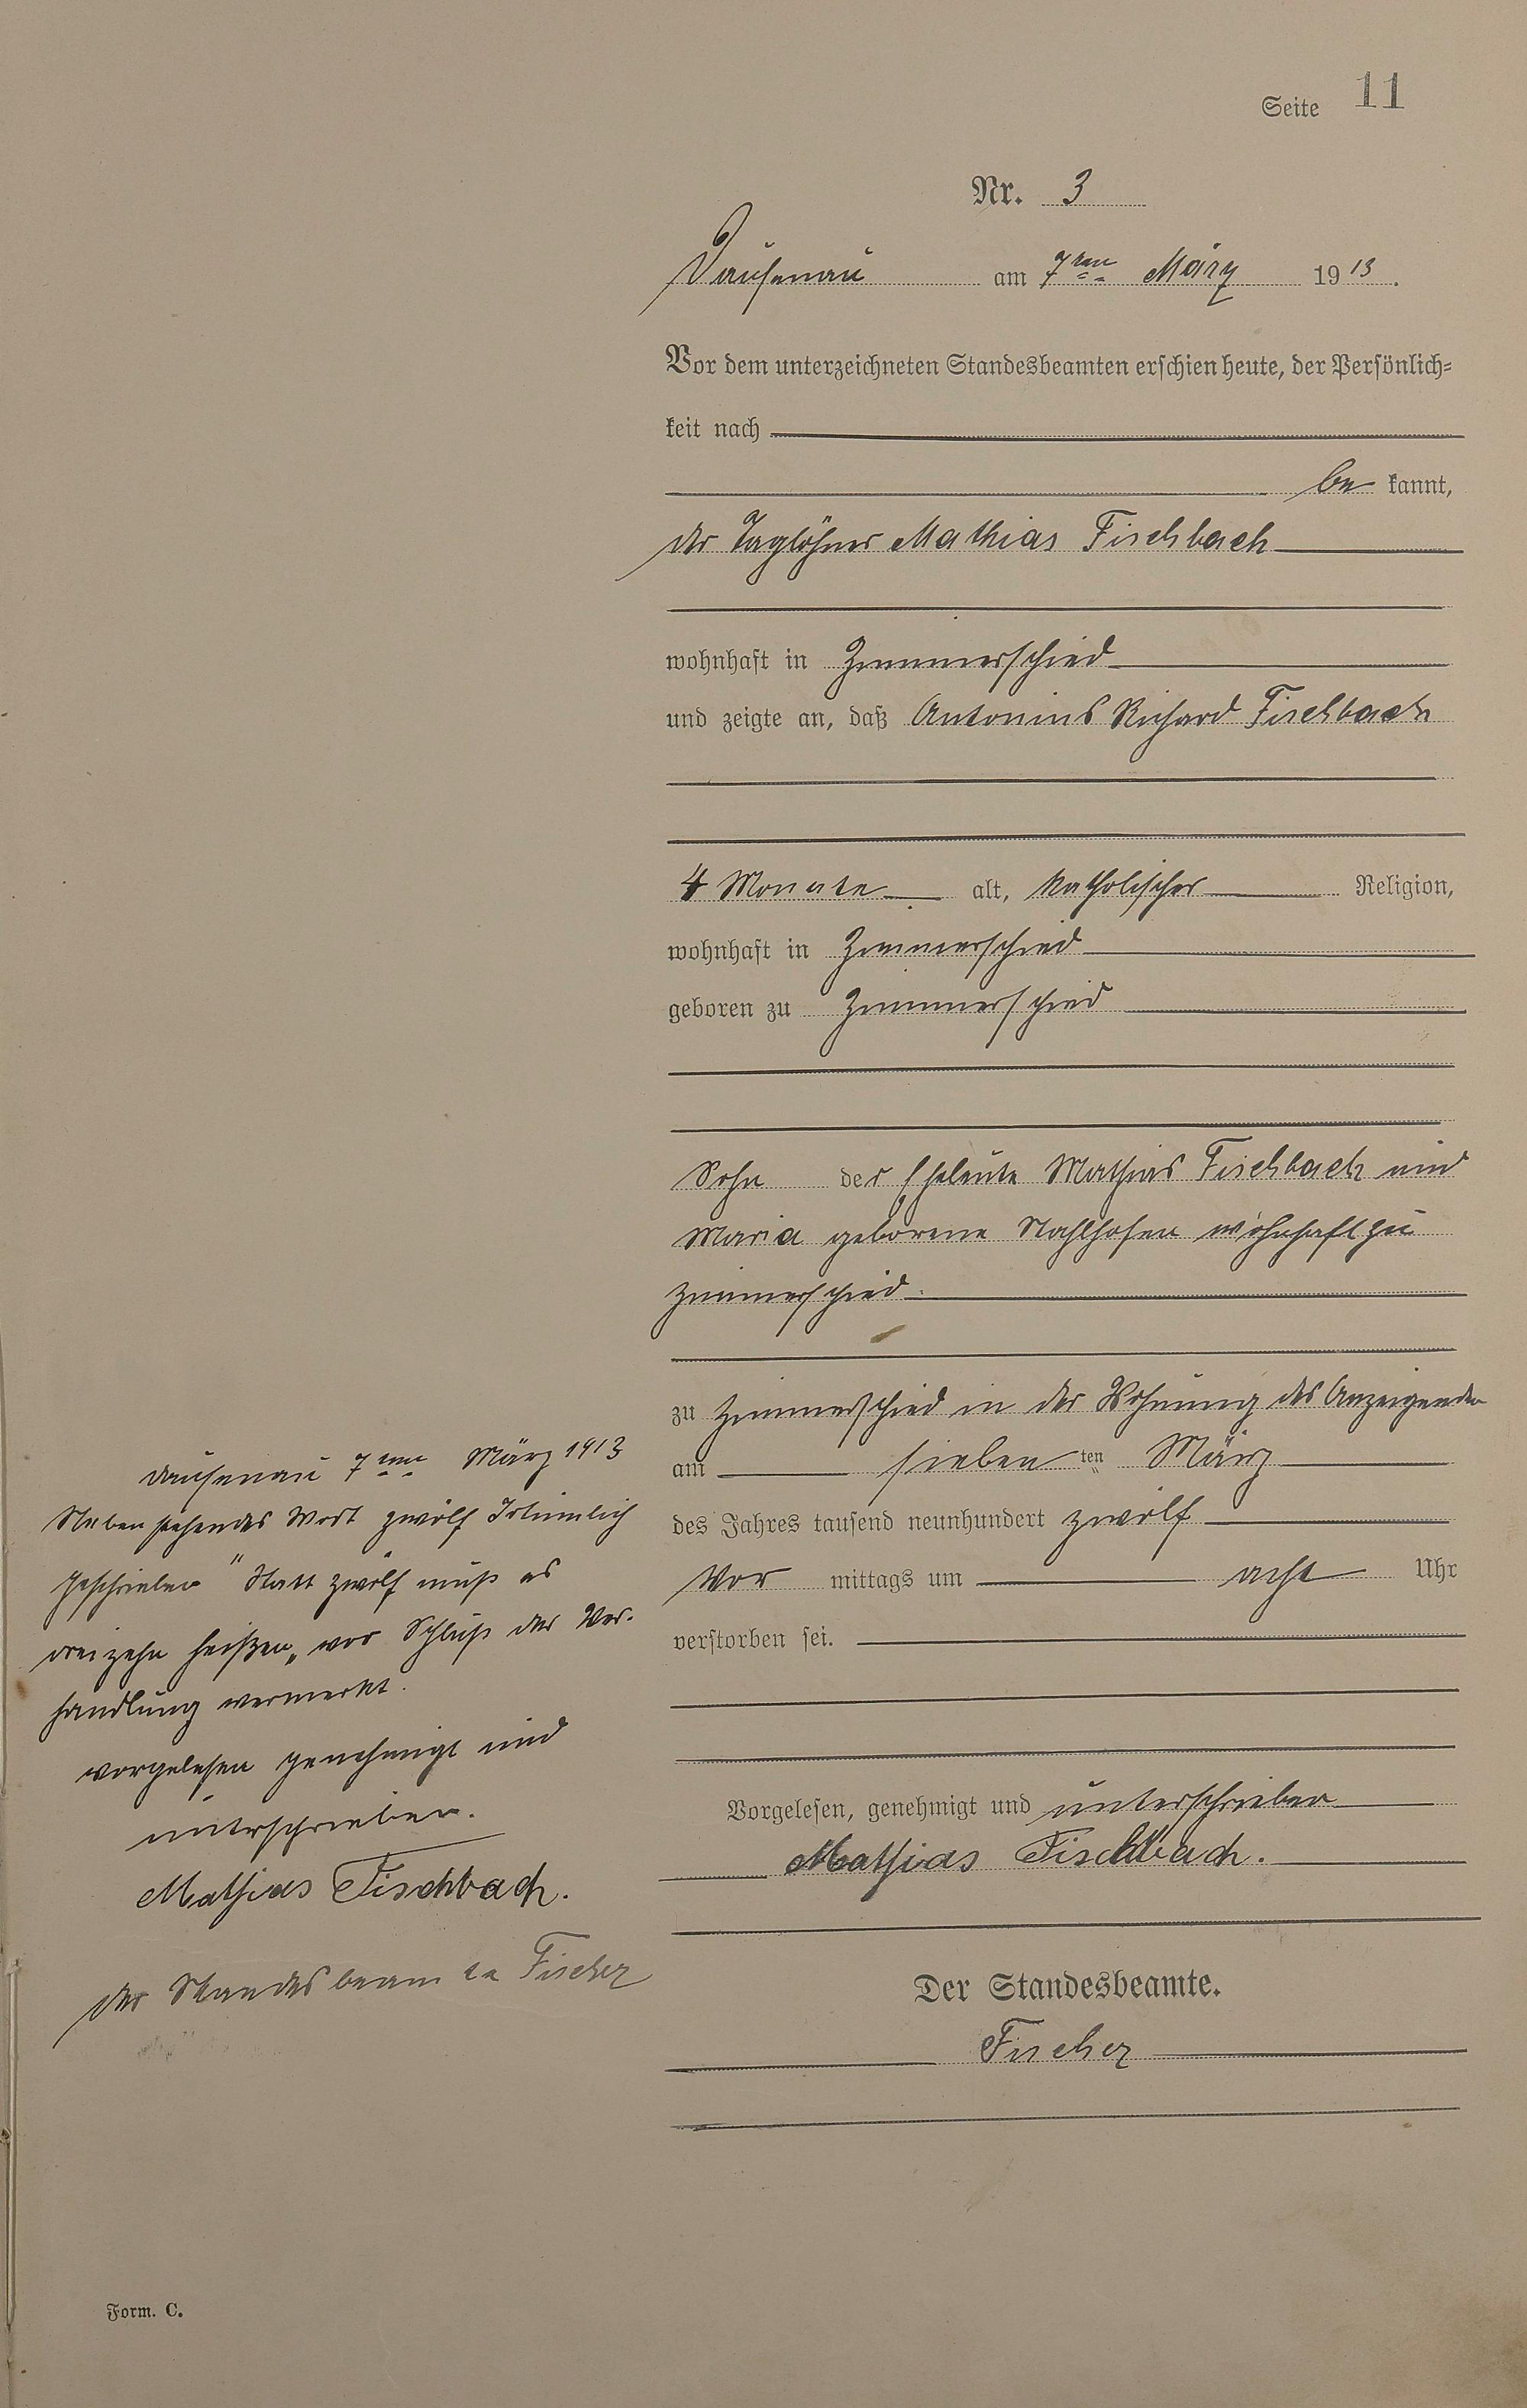 Seite 11
Nr. 3
Dausenau am 7ten März 1913.
Vor dem unterzeichneten Standesbeamten erschien heute, der Persönlich=
keit nach
be kannt,
der Taglöhner Mathias Fischbach
wohnhaft in Zimmerschied
und zeigte an, daß Antonius Richard Fischbach
4 Monate alt, katholischer Religion,
wohnhaft in Zimmerschied
geboren zu Zimmerschied
Sohn der Eheleute Mathias Fischbach und
Maria geborene Stahlhofen wohnhaft zu
Zimmerschied.
zu Zimmerschied in der Wohnung des Anzeigenden
am sieben ten März
des Jahres tausend neunhundert zwölf
Vor mittags um acht Uhr
verstorben sei.
Vorgelesen, genehmigt und unterschrieben
Mathias Fischbach.
Der Standesbeamte.
Fischer
Dausenau 7ten März 1913
Nebenstehendes Wort zwölf Irtümlich
geschrieben "Statt zwölf muß es
dreizehn heißen" vor Schluß der Ver-
handlung vermerkt.
vorgelesen genehmigt und
unterschrieben.
Mathias Fischbach.
der Standesbeamte Fischer
Form. C.